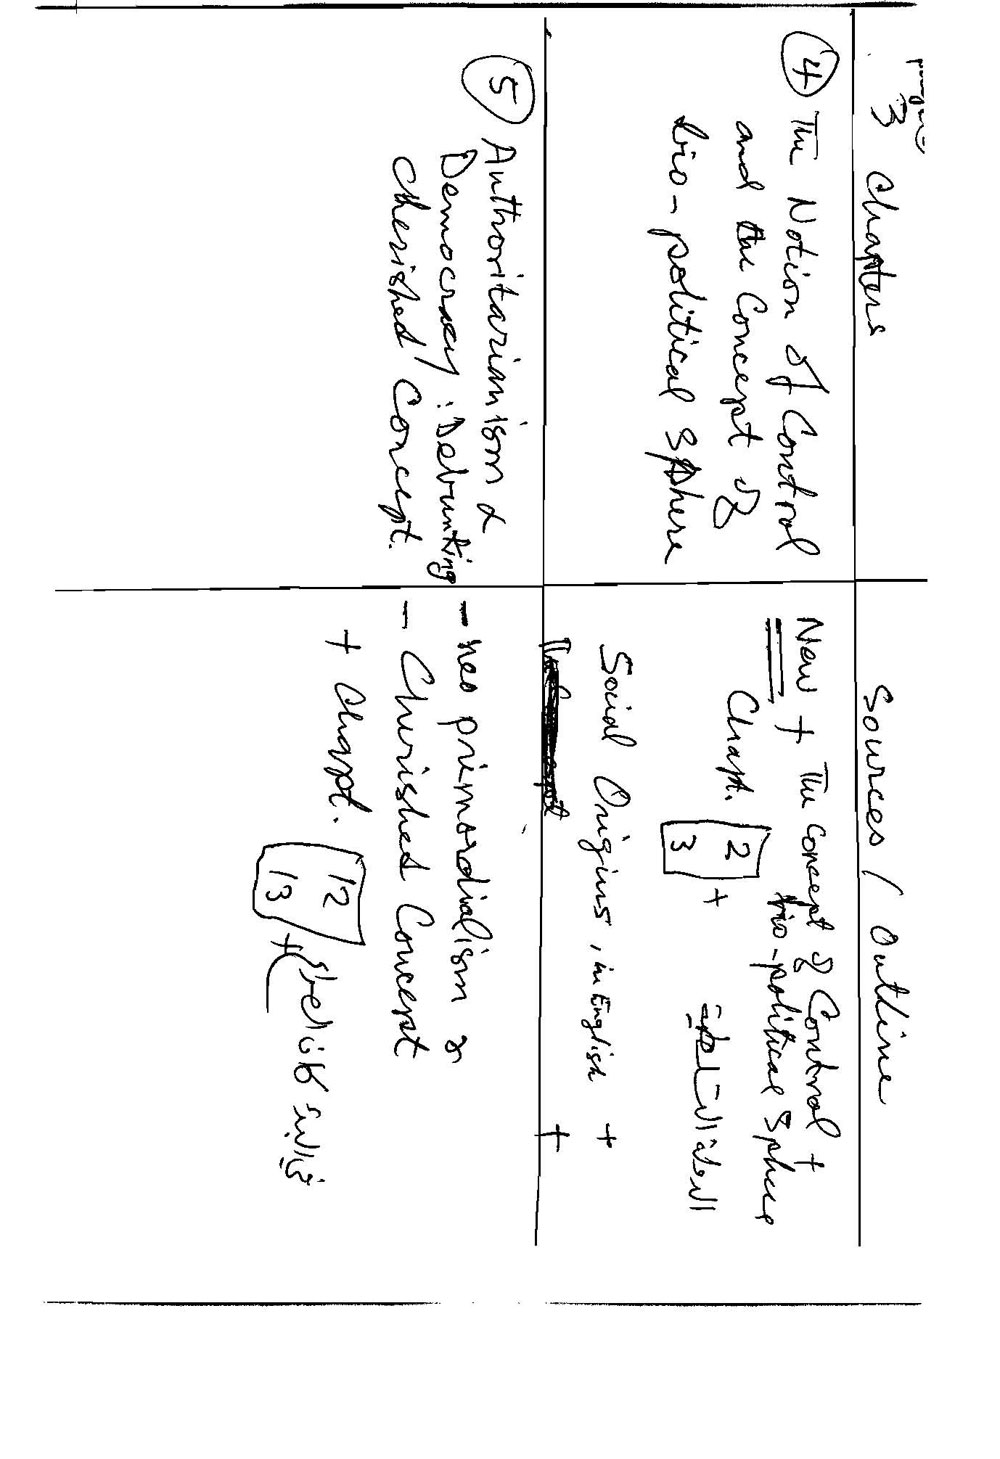 page
3
Chapters
Sources / Outline
④ The Notion of Control
and the Concept of
bio-political Sphere
New + The Concept of Control +
bio-political Sphere
Chapt. 2 +
3
Social Origins, in English +
+
⑤ Authoritarianism &
Democracy: Debunking
Cherished Concept.
- neo primordialism &
- Cherished Concept
+ Chapt. 12
13 +